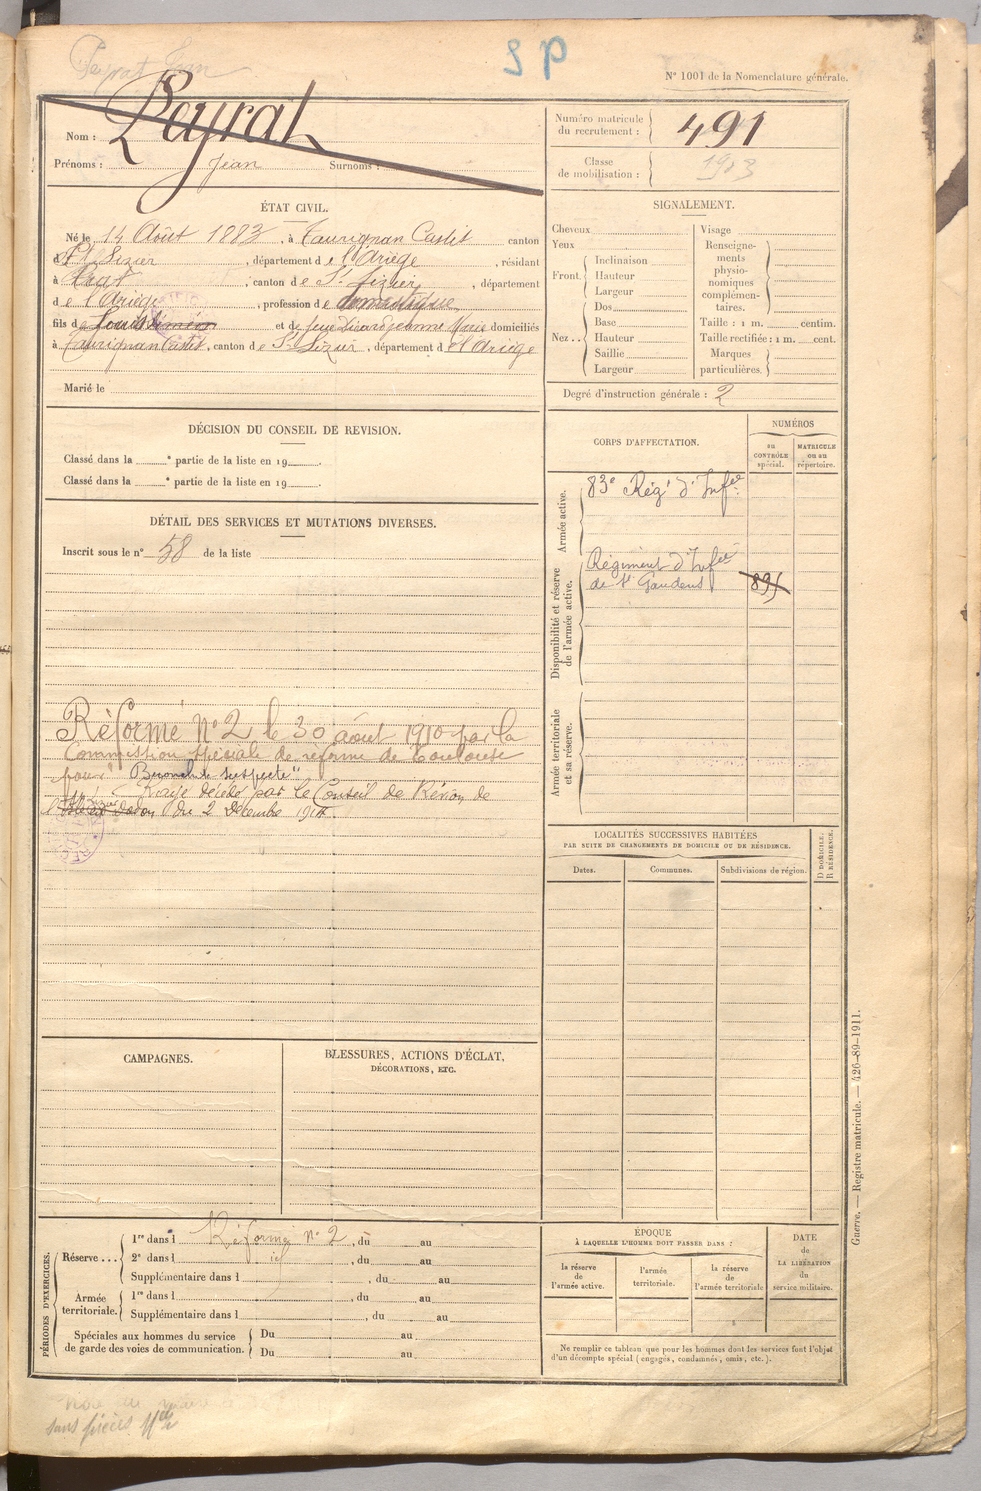 Peyrat Jean
S P
N° 1001 de la Nomenclature générale.
Nom : Peyrat
Prénoms : Jean Surnoms :
Numéro matricule du recrutement : 491
Classe de mobilisation : 1903
ÉTAT CIVIL.
Né le 14 Août 1883, à Taurignan Castet canton
d St Lizier, département de l'Ariège, résidant
à Prat, canton de St Lizier, département
de l'Ariège, profession de domestique
fils de Louis Siméon et de feue Jeanne Marie domiciliés
à Taurignan Castet, canton de St Lizier, département d el Ariège
Marié le
DÉCISION DU CONSEIL DE REVISION.
Classé dans la e partie de la liste en 19 .
Classé dans la e partie de la liste en 19 .
DÉTAIL DES SERVICES ET MUTATIONS DIVERSES.
Inscrit sous le n° 58 de la liste
Réformé N° 2 le 30 août 1910 par la
Commission spéciale de réforme de Toulouse
pour " Bronchite suspecte "
décidé par le Conseil de Révion de
du 2 Décembre 1914.
CAMPAGNES.
BLESSURES, ACTIONS D'ÉCLAT,
DÉCORATIONS, ETC.
PÉRIODES D'EXERCICES.
Réserve... 1re dans l Réformé N° 2, du au
2e dans l , du au
Supplémentaire dans l , du au
Armée territoriale. 1re dans l , du au
Supplémentaire dans l , du au
Spéciales aux hommes du service Du au
de garde des voies de communication. Du au
SIGNALEMENT.
Cheveux
Yeux
Front. Inclinaison
Hauteur
Largeur
Nez.. Dos
Base
Hauteur
Saillie
Largeur
Visage
Renseignements physionomiques complémentaires.
Taille : 1 m. centim.
Taille rectifiée : 1 m. cent.
Marques particulières.
Degré d'instruction générale : 2
CORPS D'AFFECTATION.
NUMÉROS
au CONTRÔLE spécial.
MATRICULE ou au répertoire.
Armée active.
83e Régt d'Infie
Disponibilité et réserve de l'armée active.
Régiment d'Infie
de St Gaudens 895
Armée territoriale et sa réserve.
LOCALITÉS SUCCESSIVES HABITÉES
PAR SUITE DE CHANGEMENTS DE DOMICILE OU DE RÉSIDENCE.
Dates. Communes. Subdivisions de région.
D DOMICILE. R RÉSIDENCE.
ÉPOQUE
À LAQUELLE L'HOMME DOIT PASSER DANS :
la réserve de l'armée active.
l'armée territoriale.
la réserve de l'armée territoriale
DATE de LA LIBÉRATION du service militaire.
Ne remplir ce tableau que pour les hommes dont les services font l'objet
d'un décompte spécial (engagés, condamnés, omis, etc.).
Guerre. — Registre matricule. — 426-89-1911.
sans pièces